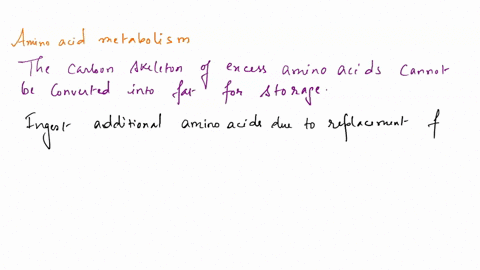 Amino acid metabolism
The Carbon skeleton of excess amino acids cannot
be Converted into fat for storage.
Ingest additional amino acids due to replacement f